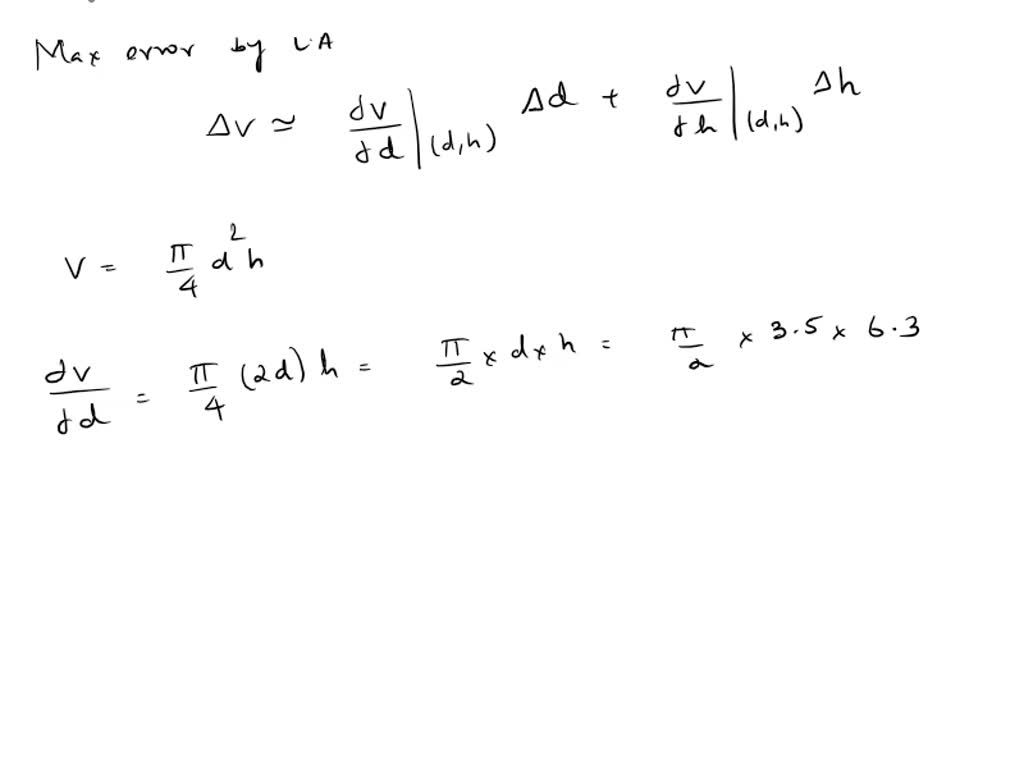 Max error by L.A
Δv ≃ ∂v/∂d |(d,h) Δd + ∂v/∂h |(d,h) Δh
V = π/4 d²h
∂v/∂d = π/4 (2d) h = π/2 × d × h = π/2 × 3.5 × 6.3